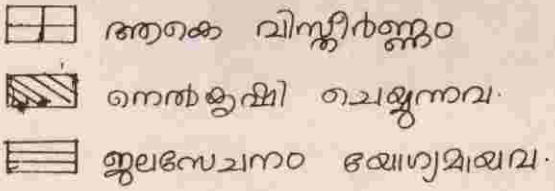 ആകെ വിസ്തീർണ്ണം
നെൽകൃഷി ചെയ്യുന്നവ.
ജലസേചനം യോഗ്യമായവ.